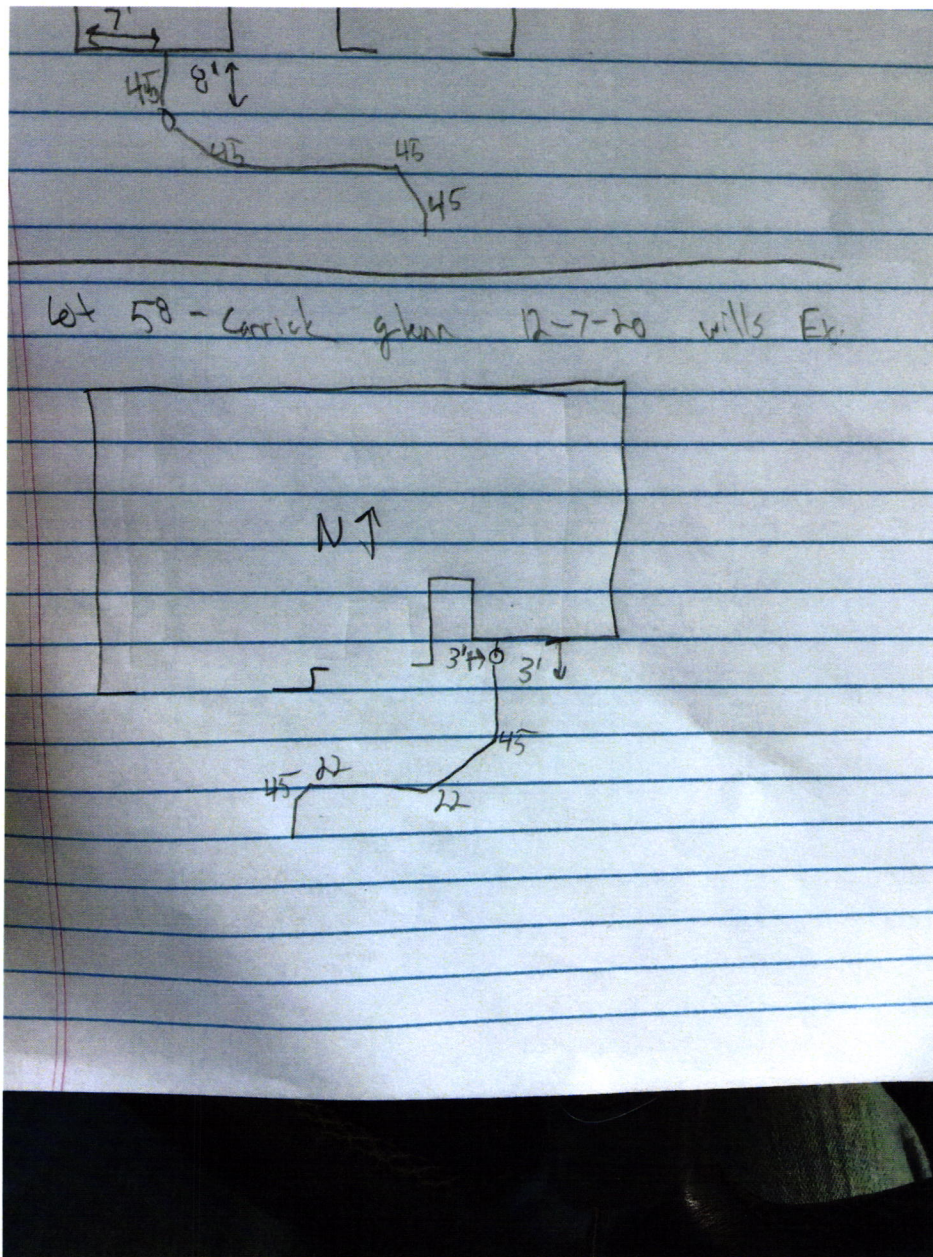 7'
45 8'
45 45
45
Lot 58 - Carrick glenn 12-7-20 wills Ex.
N
3' 3'
45
45 22
22